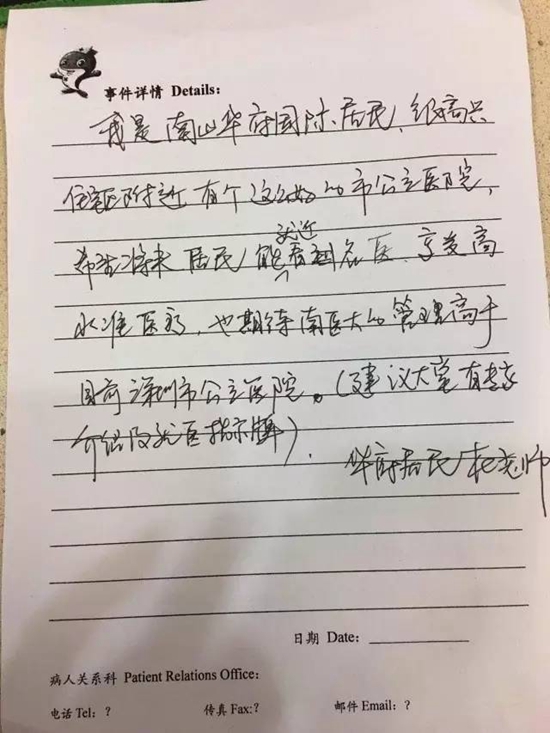 事件详情 Details:
我是南山华府国际居民,很高兴
住宅区附近有个这么好的市公立医院,
就近
希望将来居民能看到名医、享受高
水准医疗,也期待南医大的管理高于
目前深圳市公立医院。(建议大堂有专家
介绍及就医指示牌)。
华府居民 杜老师
日期 Date:
病人关系科 Patient Relations Office:
电话 Tel: ?  传真 Fax:?  邮件 Email: ?